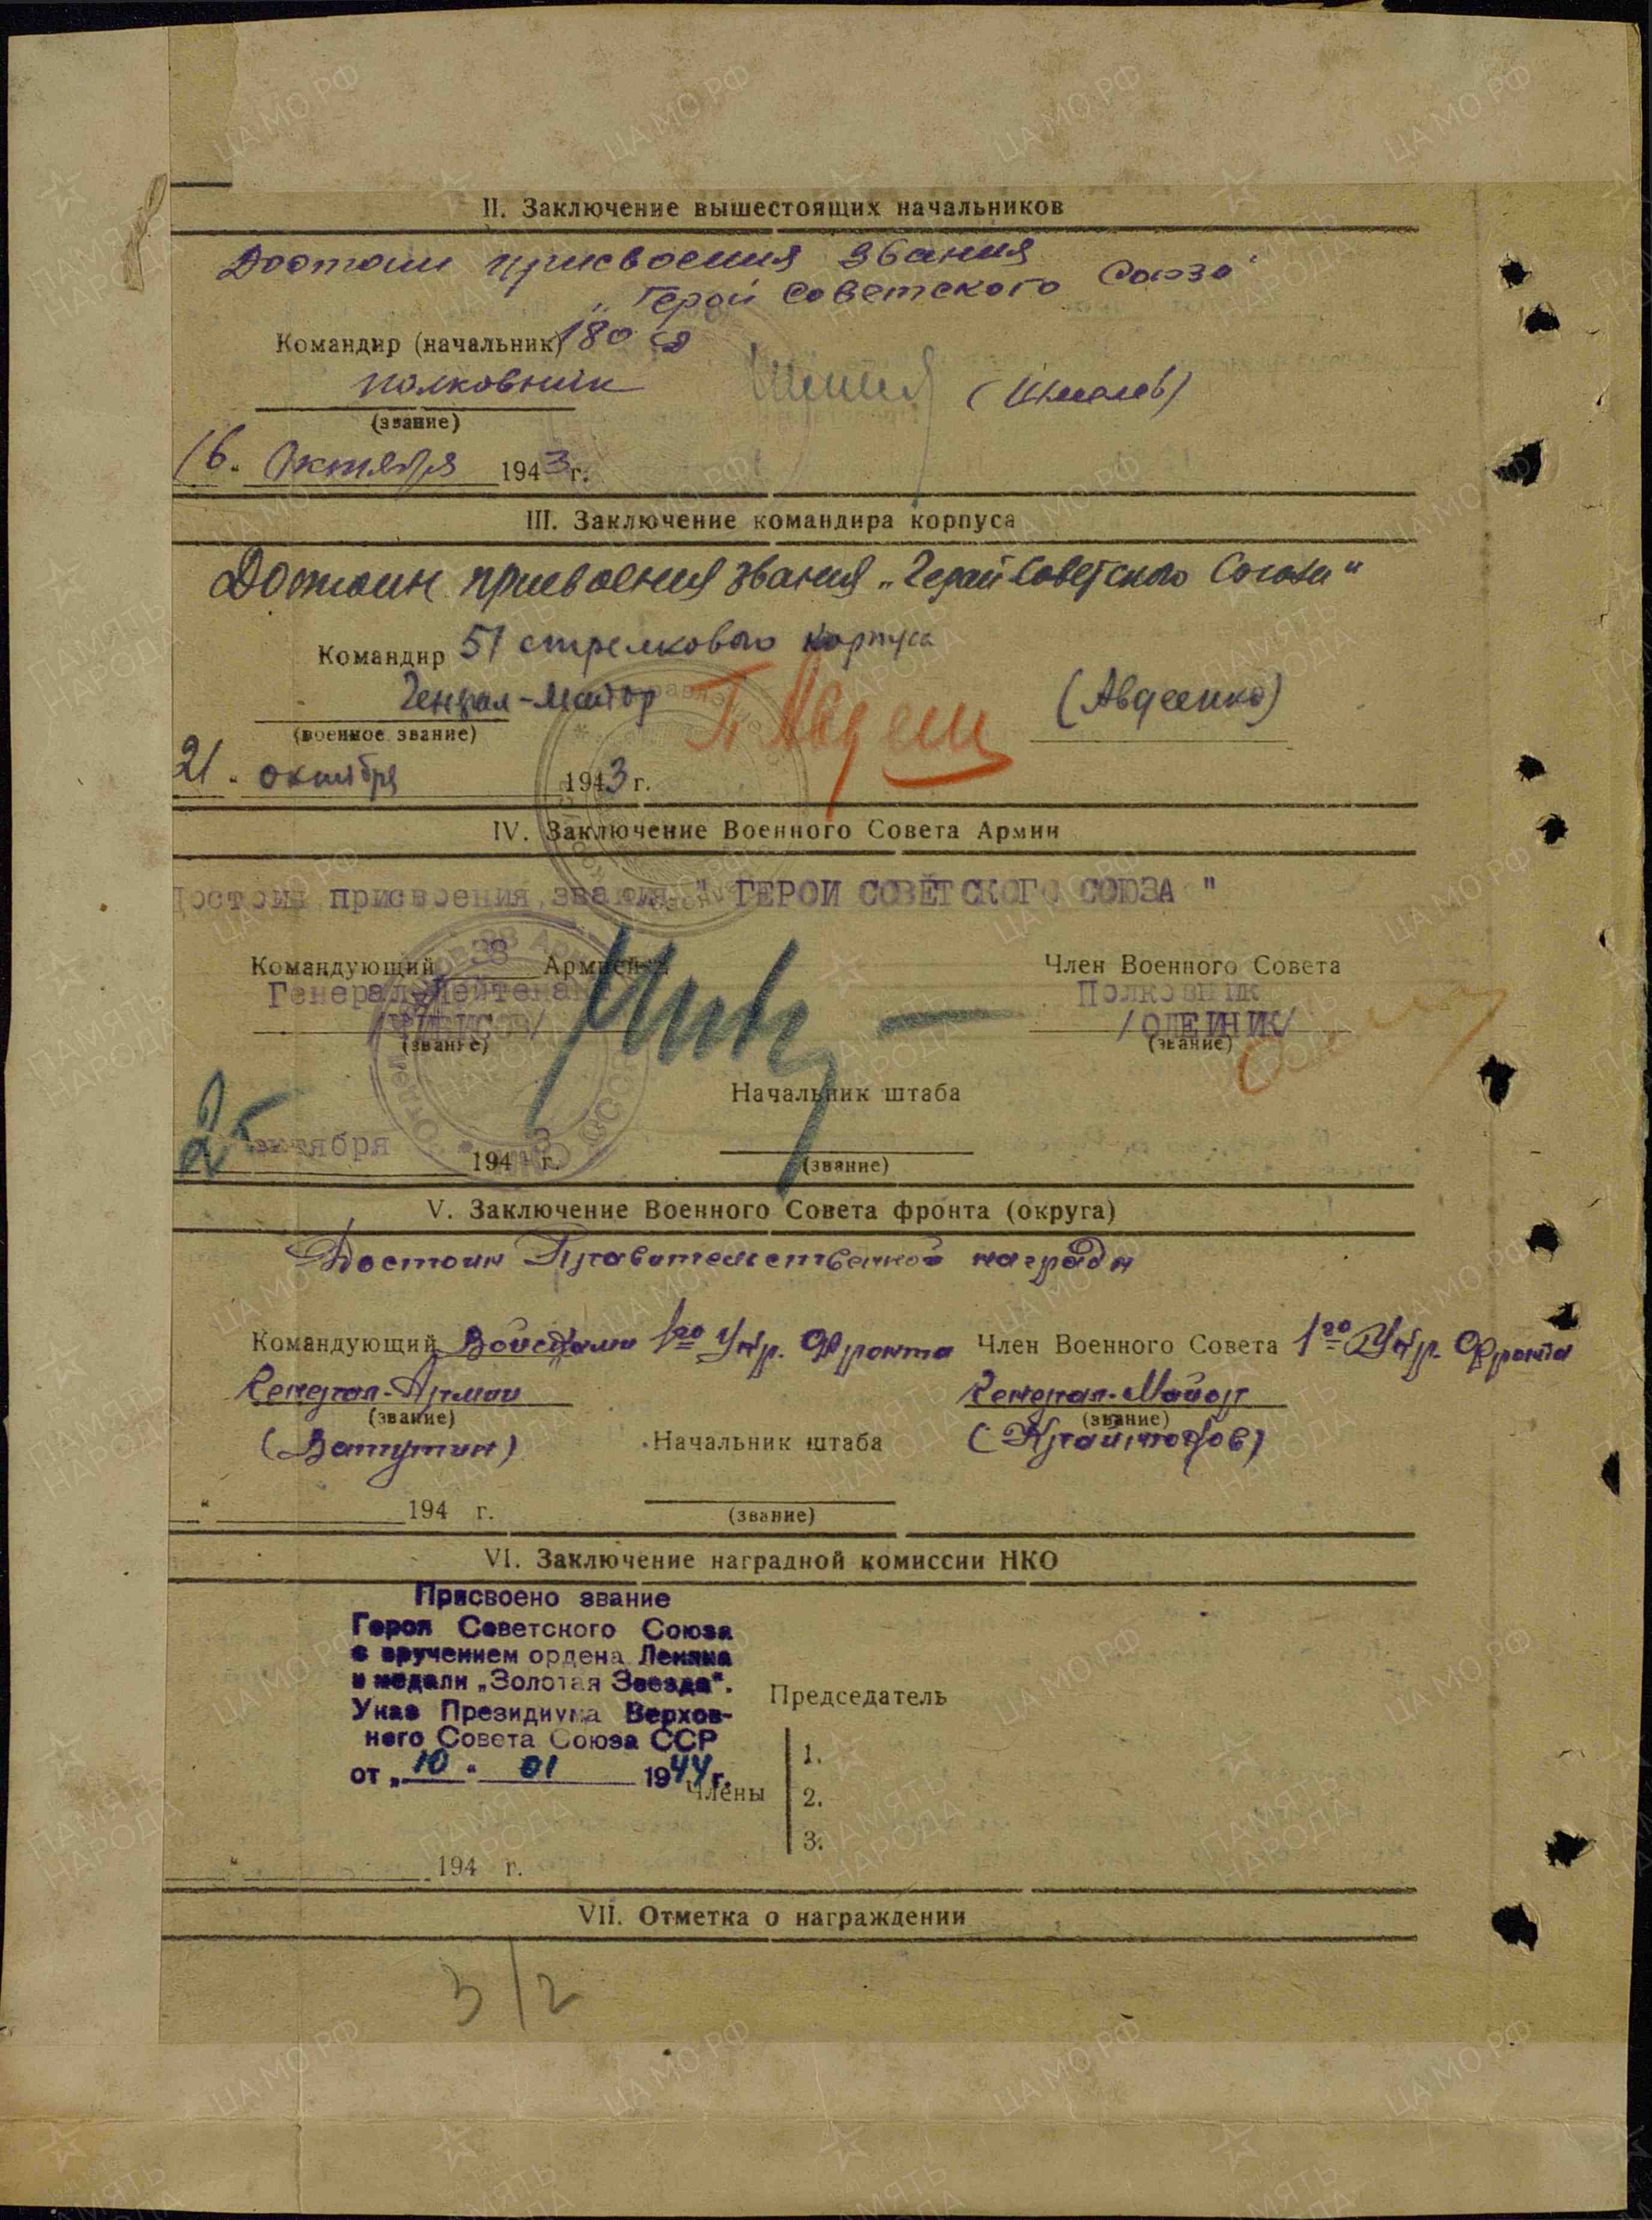 II. Заключение вышестоящих начальников
Достоин присвоения звания
„Герой Советского Союза"
Командир (начальник) 180 сд
полковник (Шмелев)
(звание)
16. Октября 1943 г.
III. Заключение командира корпуса
Достоин присвоения звания „Герой Советского Союза"
Командир 51 стрелкового корпуса
Генерал-майор (Авдеенко)
(военное звание)
21. октября 1943 г.
IV. Заключение Военного Совета Армии
Достоин присвоения звания " ГЕРОЙ СОВЕТСКОГО СОЮЗА "
Командующий 38 Армией
Член Военного Совета
Генерал-Лейтенант
Полковник
/ЧИБИСОВ/
/ОЛЕЙНИК/
(звание)
(звание)
Начальник штаба
25 октября 1943 г.
(звание)
V. Заключение Военного Совета фронта (округа)
Достоин Правительственной награды
Командующий Войсками 1го Укр. Фронта Член Военного Совета 1го Укр. Фронта
Генерал-Армии
Генерал-Майор
(звание)
(звание)
(Ватутин)
Начальник штаба
(Крайнюков)
194 г.
(звание)
VI. Заключение наградной комиссии НКО
Присвоено звание
Героя Советского Союза
с вручением ордена Ленина
и медали „Золотая Звезда".
Указ Президиума Верхов-
ного Совета Союза ССР
от „10" 01 1944 г.
Председатель
Члены
1.
2.
3.
194 г.
VII. Отметка о награждении
3/2
ЦАМО РФ
ПАМЯТЬ
НАРОДА